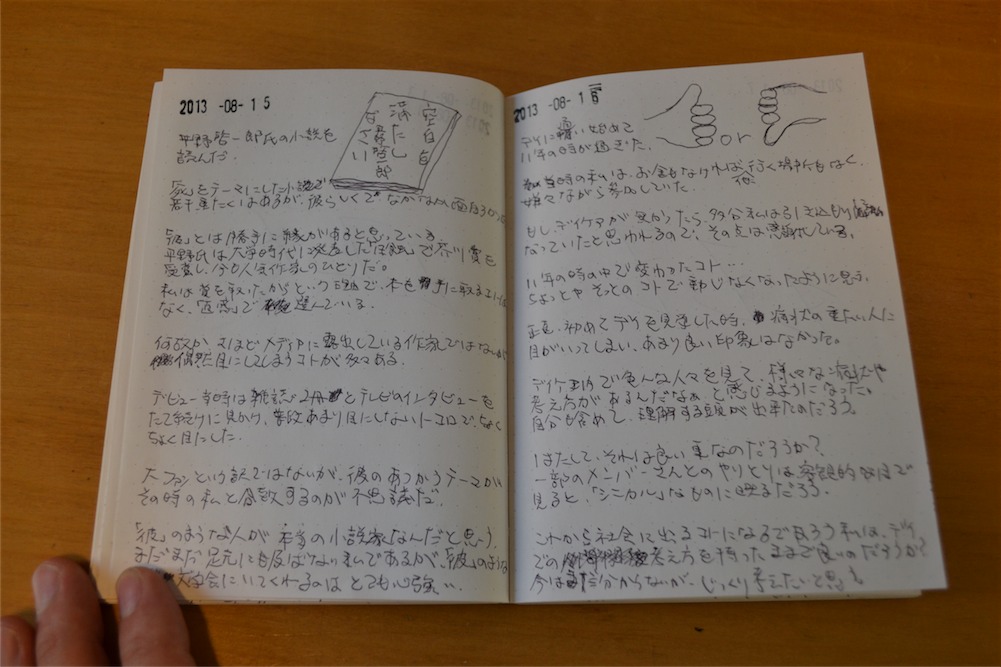 2013 -08- 15
空白を
満たし
なさい
平野啓一郎
平野啓一郎氏の小説を
読んだ。
をテーマにした小説で
若干重たくはあるが、彼らしくて なかなか面白かった
「彼」とは勝手に縁があると思っている。
平野氏は大学時代に発表した「日蝕」で芥川賞を
受賞し、今も人気作家のひとりだ。
私は賞を取ったからという理由で、本を手に取るコトは
なく、「直感」で選んでいる。
何故か、さほどメディアに露出している作家ではないが
偶然目にしてしまうコトが多々ある。
デビュー当時は雑誌2冊とテレビのインタビューを
たて続けに見かけ、普段あまり目にしないトコロで、ちょく
ちょく目にした。
大ファンという訳ではないが、彼のあつかうテーマが
その時の私と合致するのが不思議だ。
「彼」のような人が本当の小説家なんだと思う。
まだまだ足元にも及ばない私であるが、「彼」のような
にいてくれるのは とても心強い。
2013 -08- 1
or
デイに通い始めて
11年の時が過ぎた。
当時の私は、お金もなければ、他に行く場所もなく、
嫌々ながら参加していた。
もし、デイケアが無かったら、多分私は引き込もりに
なっていたと思われるので、その点は感謝している。
11年の時の中で変わったコト…
ちょっとやそっとのコトで動じなくなったように思う。
正直、初めてデイを見学した時、病状の重たい人に
目がいってしまい、あまり良い印象はなかった。
デイケア内で色んな人々を見て、様々な病状や
考え方があるんだなぁと感じるようになった。
自分も含めて、理解する頭が出来たのだろう。
はたして、それは良い事なのだろうか?
一部のメンバーさんとのやりとりは客観的な目で
見ると、「シニカル」なものに映るだろう。
これから社会に出るコトになるで有ろう私は、デイ
での考え方を持ったままで良いのだろうか?
今は分からないが、じっくり考えたいと思う。